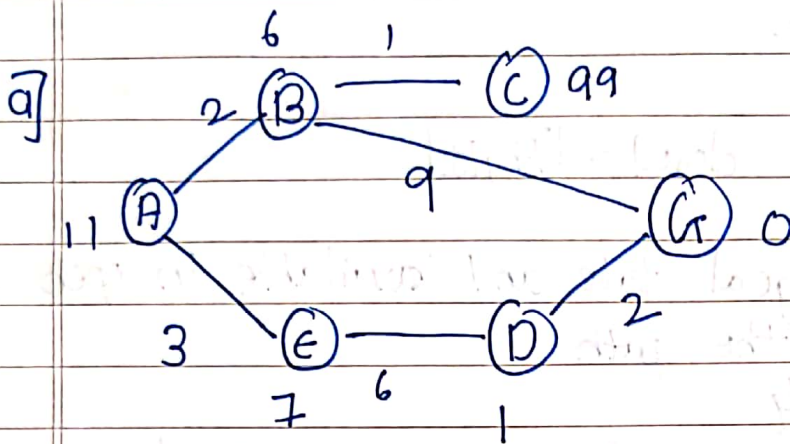 6 1
a] 2 B C 99
9
11 A G 0
3 E D 2
7 6 1